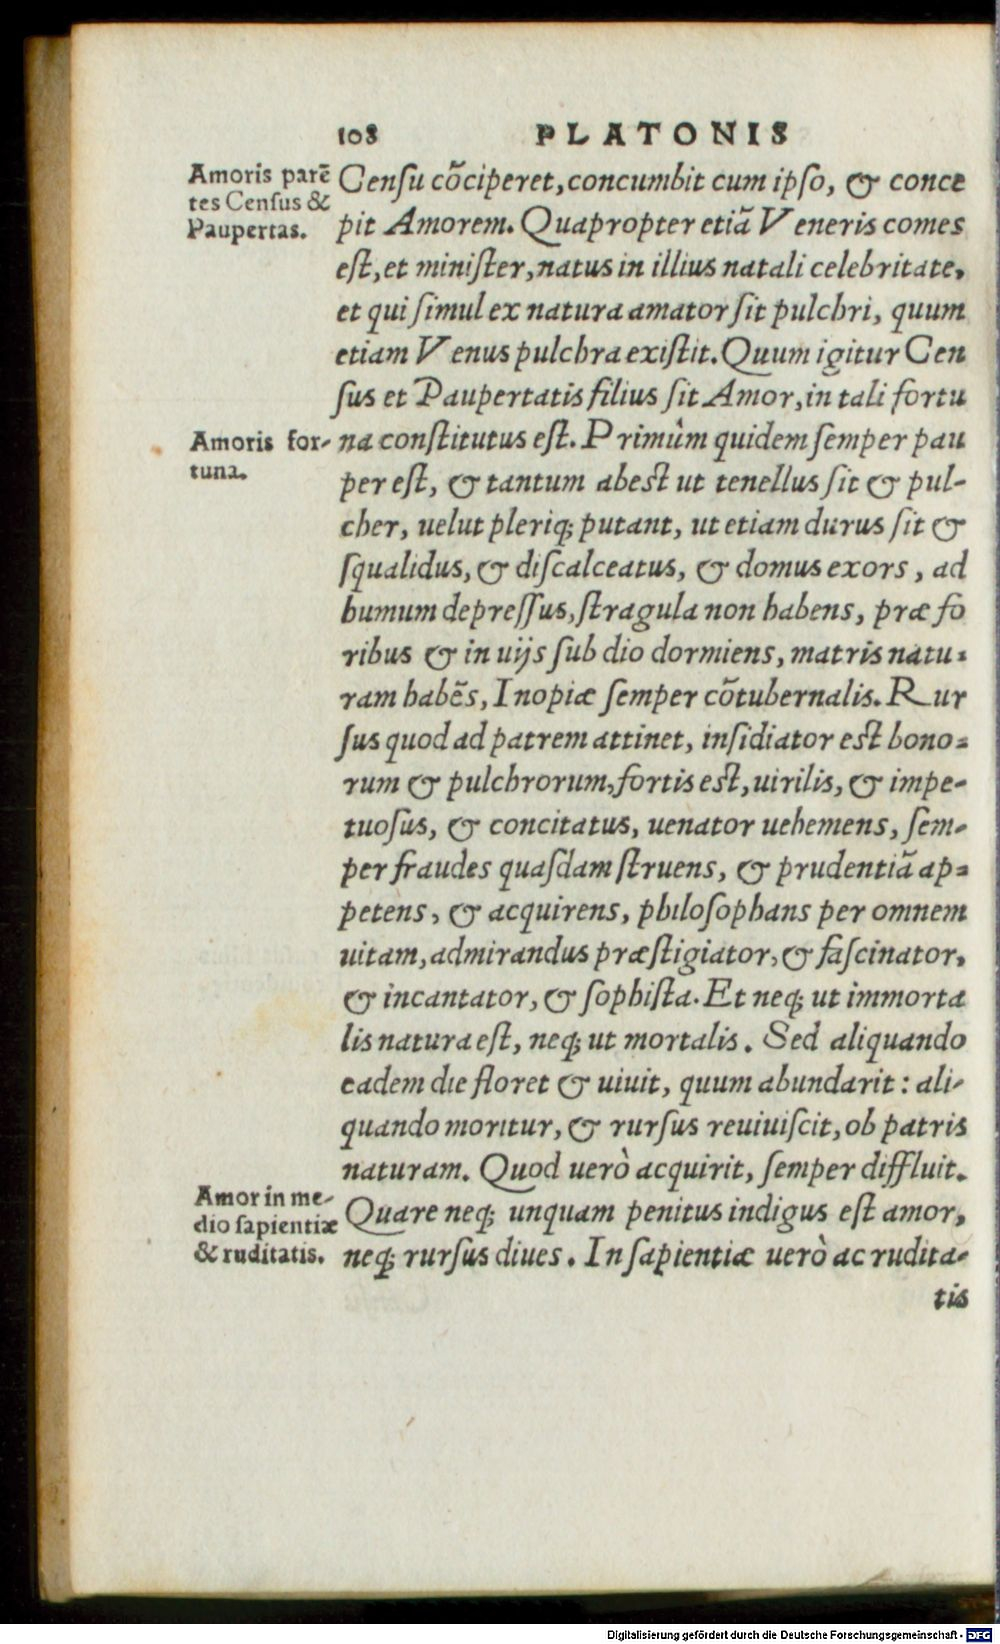 108 PLATONIS
Amoris parẽ
tes Census &
Paupertas.
Censu cõciperet, concumbit cum ipso, & conce
pit Amorem. Quapropter etiã Veneris comes
est, et minister, natus in illius natali celebritate,
et qui simul ex natura amator sit pulchri, quum
etiam Venus pulchra existit. Quum igitur Cen
sus et Paupertatis filius sit Amor, in tali fortu
Amoris for-
tuna.
na constitutus est. Primùm quidem semper pau
per est, & tantum abest ut tenellus sit & pul-
cher, uelut pleriq; putant, ut etiam durus sit &
squalidus, & discalceatus, & domus exors, ad
humum depressus, stragula non habens, præ fo
ribus & in uijs sub dio dormiens, matris natu-
ram habẽs, Inopiæ semper cõtubernalis. Rur
sus quod ad patrem attinet, insidiator est bono-
rum & pulchrorum, fortis est, uirilis, & impe-
tuosus, & concitatus, uenator uehemens, sem-
per fraudes quasdam struens, & prudentiã ap-
petens, & acquirens, philosophans per omnem
uitam, admirandus præstigiator, & fascinator,
& incantator, & sophista. Et neq; ut immorta
lis natura est, neq; ut mortalis. Sed aliquando
eadem die floret & uiuit, quum abundarit: ali-
quando moritur, & rursus reuiuiscit, ob patris
naturam. Quod uerò acquirit, semper diffluit.
Amor in me-
dio sapientiæ
& ruditatis.
Quare neq; unquam penitus indigus est amor,
neq; rursus diues. In sapientiæ uerò ac rudita-
tis
Digitalisierung gefördert durch die Deutsche Forschungsgemeinschaft - DFG